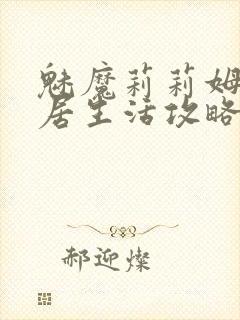 魅魔莉莉姆
居生活攻略
郝迎灿